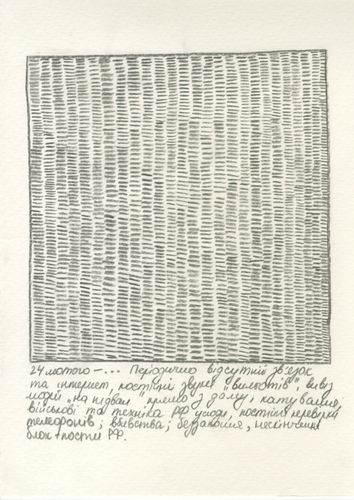 24 лютого – ... Періодично відсутній зв'язок
та інтернет, постійні звуки "вильотів", вивіз
людей "на підвал" прямо з дому, катування,
військові та техніка РФ усюди, постійні перевірки
телефонів; вбивства; беззаконня, нескінченні
блок-пости РФ.